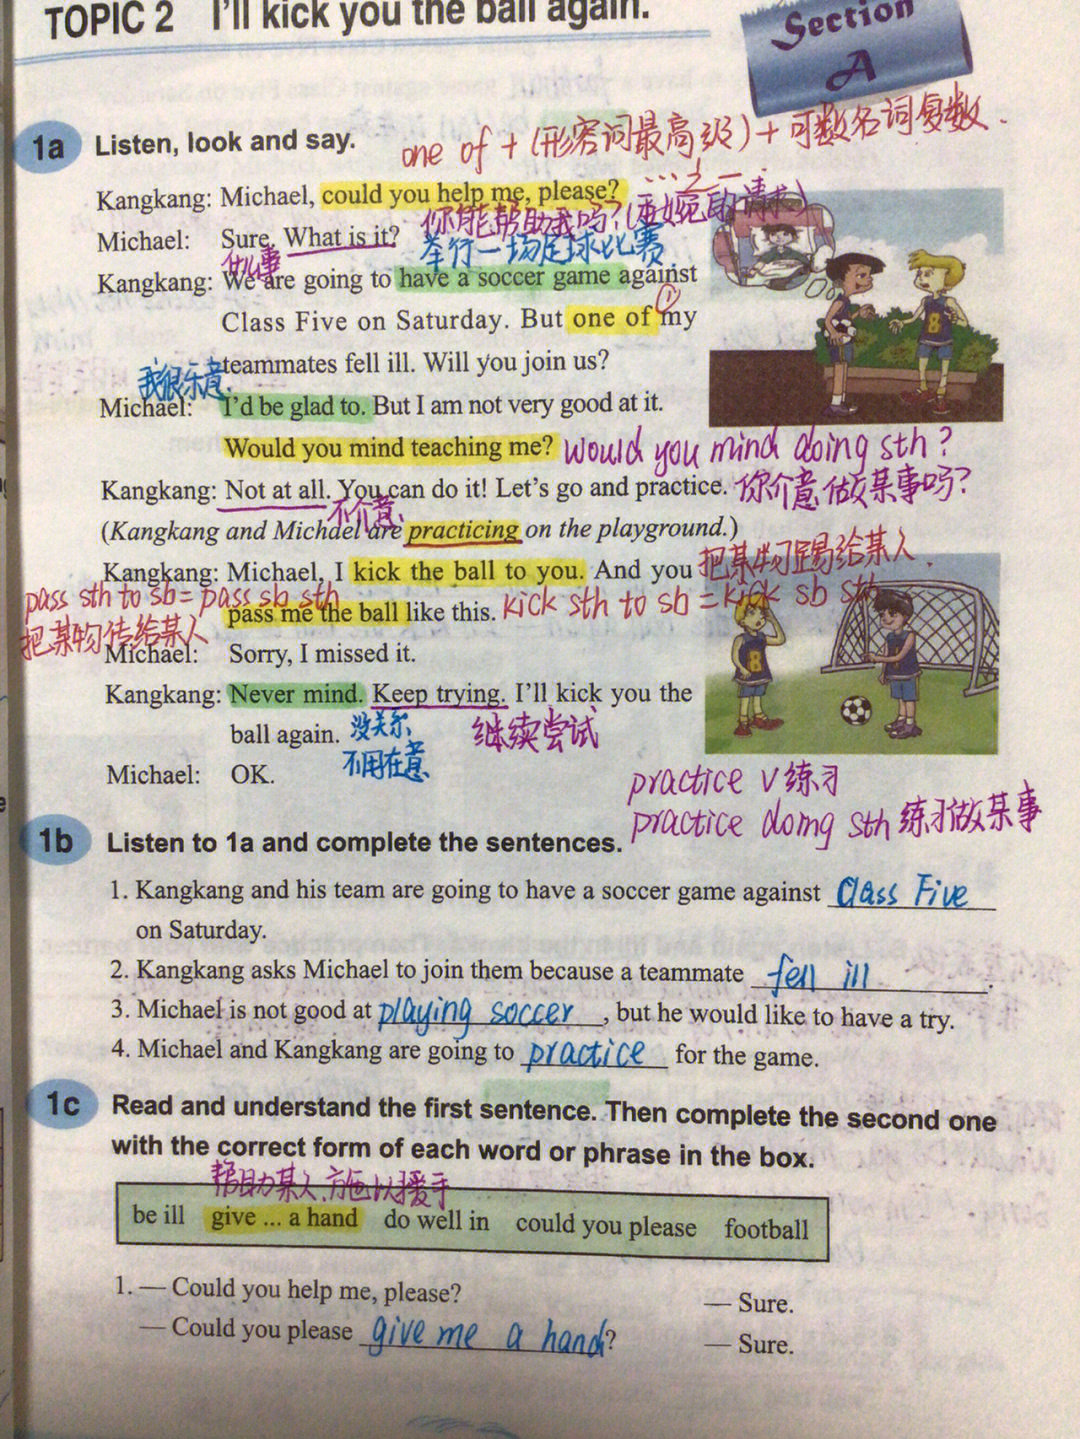 TOPIC 2 I'll kick you the ball again.
Section
A
1a Listen, look and say.
one of + (形容词最高级) + 可数名词复数.
…之一.
Kangkang: Michael, could you help me, please?
你能帮助我吗?(委婉的请求)
Michael: Sure. What is it?
举行一场足球比赛
什么事
Kangkang: We are going to have a soccer game against
①
Class Five on Saturday. But one of my
teammates fell ill. Will you join us?
我很乐意
Michael: I'd be glad to. But I am not very good at it.
Would you mind teaching me? Would you mind doing sth?
Kangkang: Not at all. You can do it! Let's go and practice. 你介意做某事吗?
不介意
(Kangkang and Michael are practicing on the playground.)
Kangkang: Michael, I kick the ball to you. And you 把某物踢给某人.
pass sth to sb = pass sb sth
pass me the ball like this. kick sth to sb = kick sb sth
把某物传给某人
Michael: Sorry, I missed it.
Kangkang: Never mind. Keep trying. I'll kick you the
ball again. 没关系 继续尝试
不用在意
Michael: OK.
practice v 练习
practice doing sth 练习做某事
1b Listen to 1a and complete the sentences.
1. Kangkang and his team are going to have a soccer game against Class Five
on Saturday.
2. Kangkang asks Michael to join them because a teammate fell ill.
3. Michael is not good at playing soccer, but he would like to have a try.
4. Michael and Kangkang are going to practice for the game.
1c Read and understand the first sentence. Then complete the second one
with the correct form of each word or phrase in the box.
帮助某人,施以援手
be ill give ... a hand do well in could you please football
1. — Could you help me, please? — Sure.
— Could you please give me a hand? — Sure.